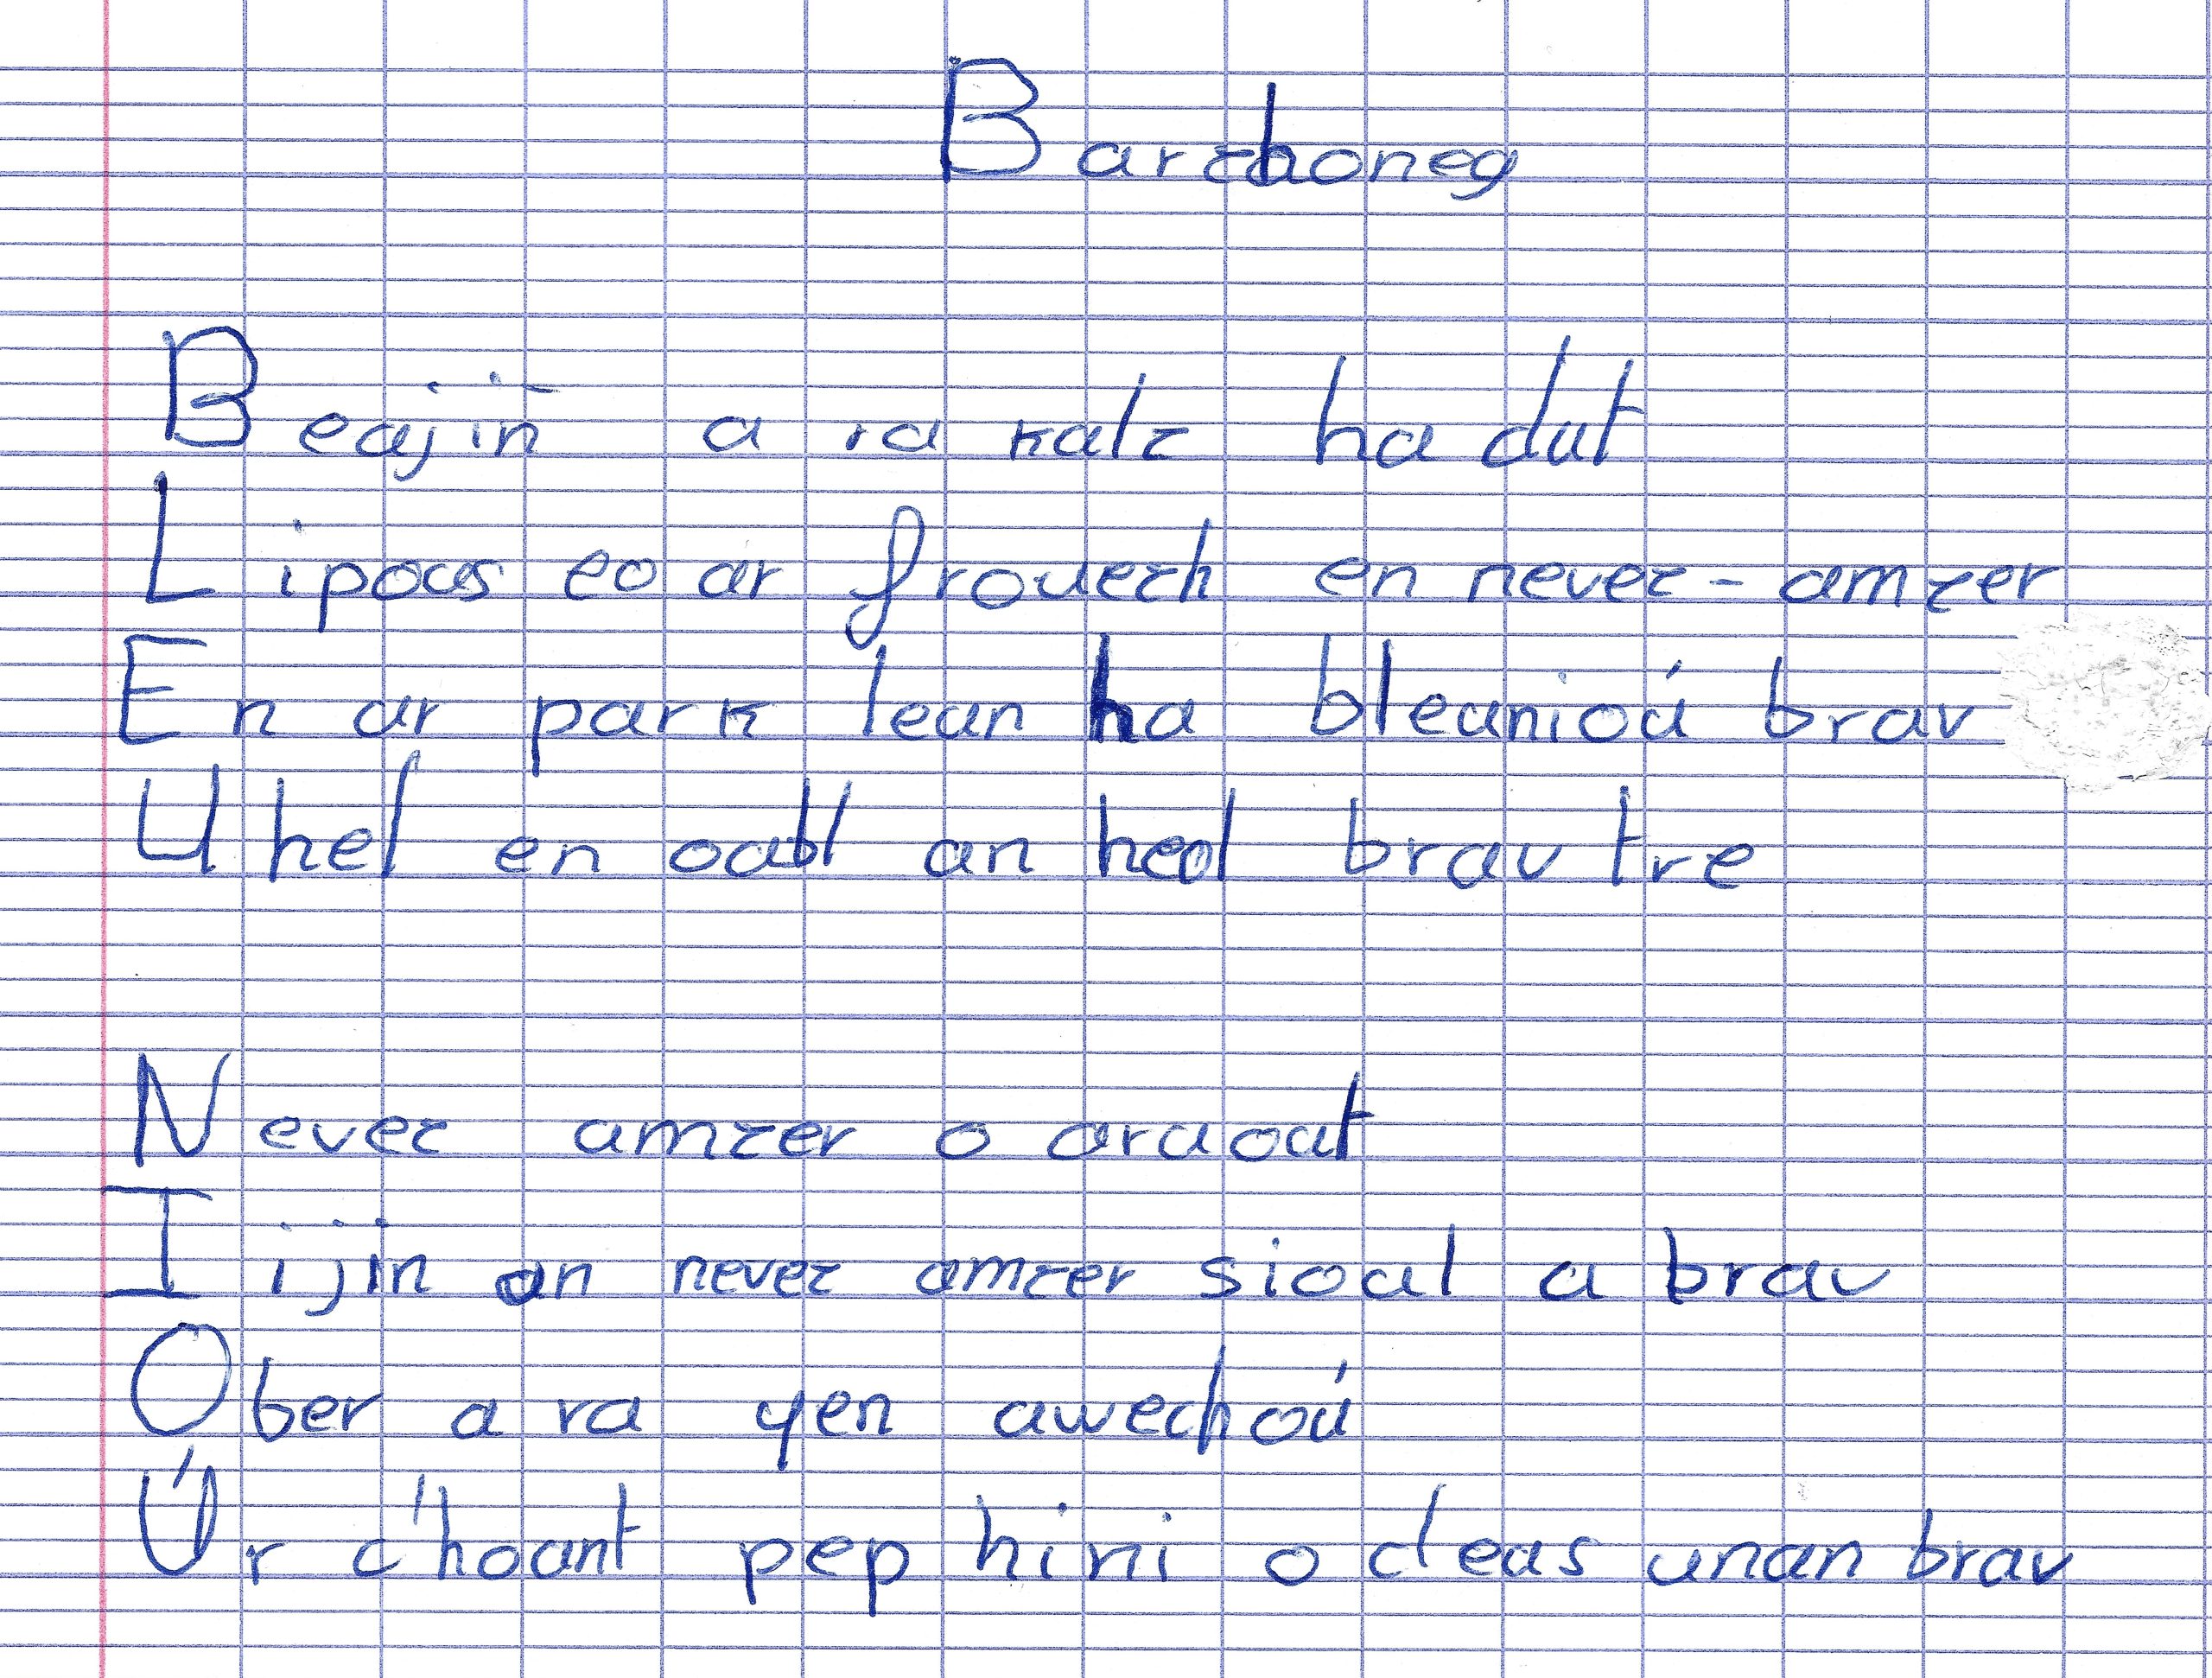 Barzhoneg
Beajiñ a ra kalz ha dut
Lipous eo ar frouezh en nevez-amzer
En ar park lean ha bleunioú brav
Uhel en oabl an heol brav tre
Nevez amzer o araoat
I ijin an nevez amzer sioal a brav
Ober a ra yen awechoú
Úr c'hoant pep hini o deus unan brav